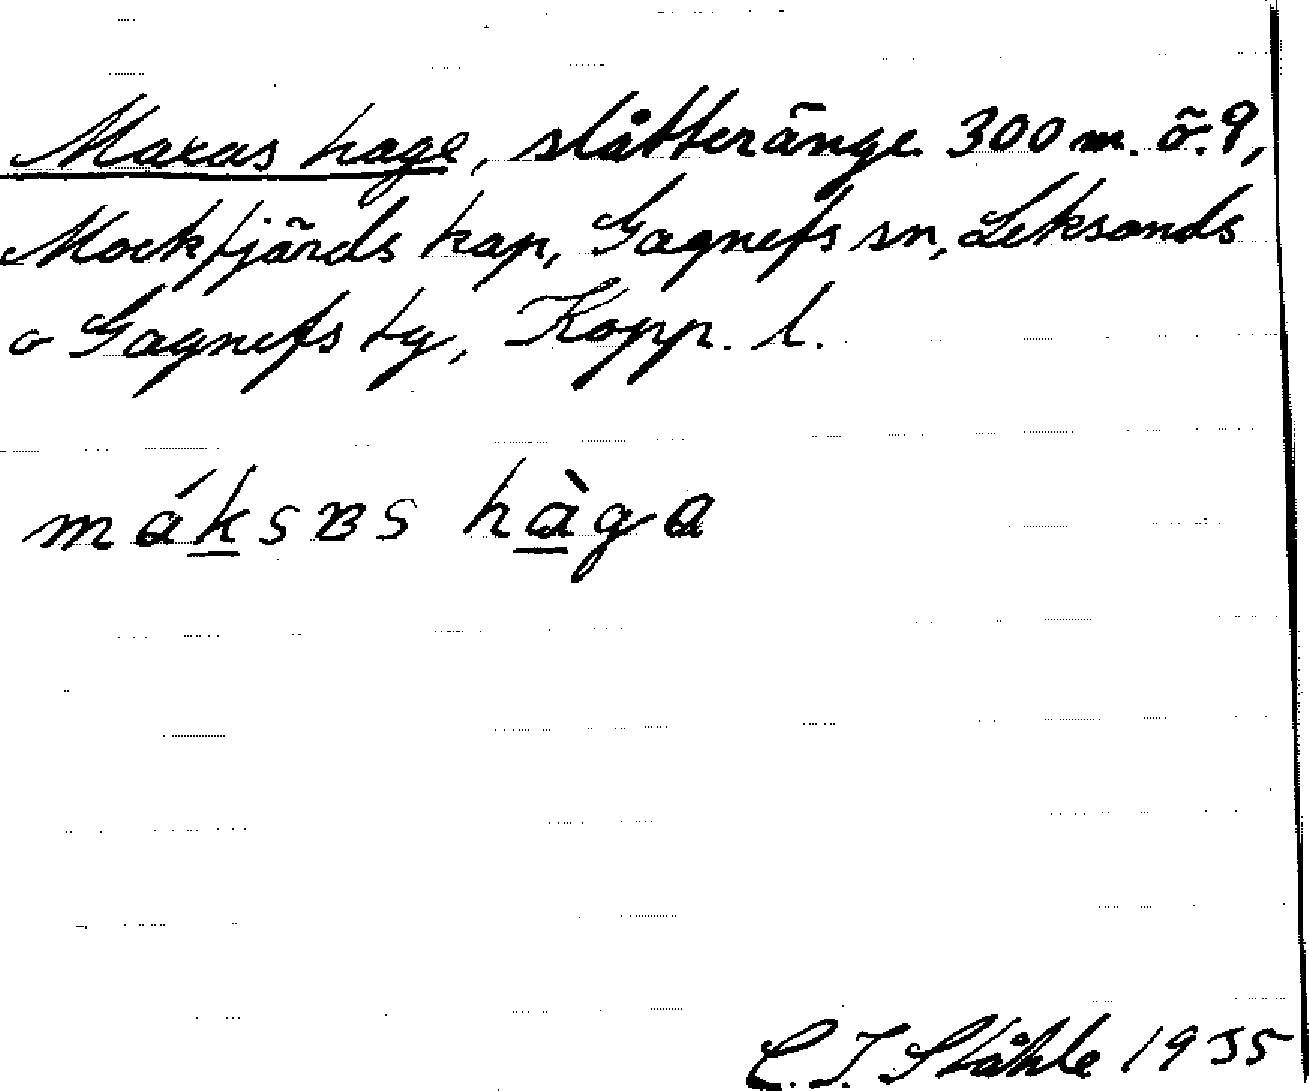 Maxas hage, slåtteränge 300 m. ö. 9,
Mockfjärds kap, Gagnefs sn, Leksands
o Gagnefs tg, Kopp. l.
máksʙs hàga
C. I. Ståhle 1935